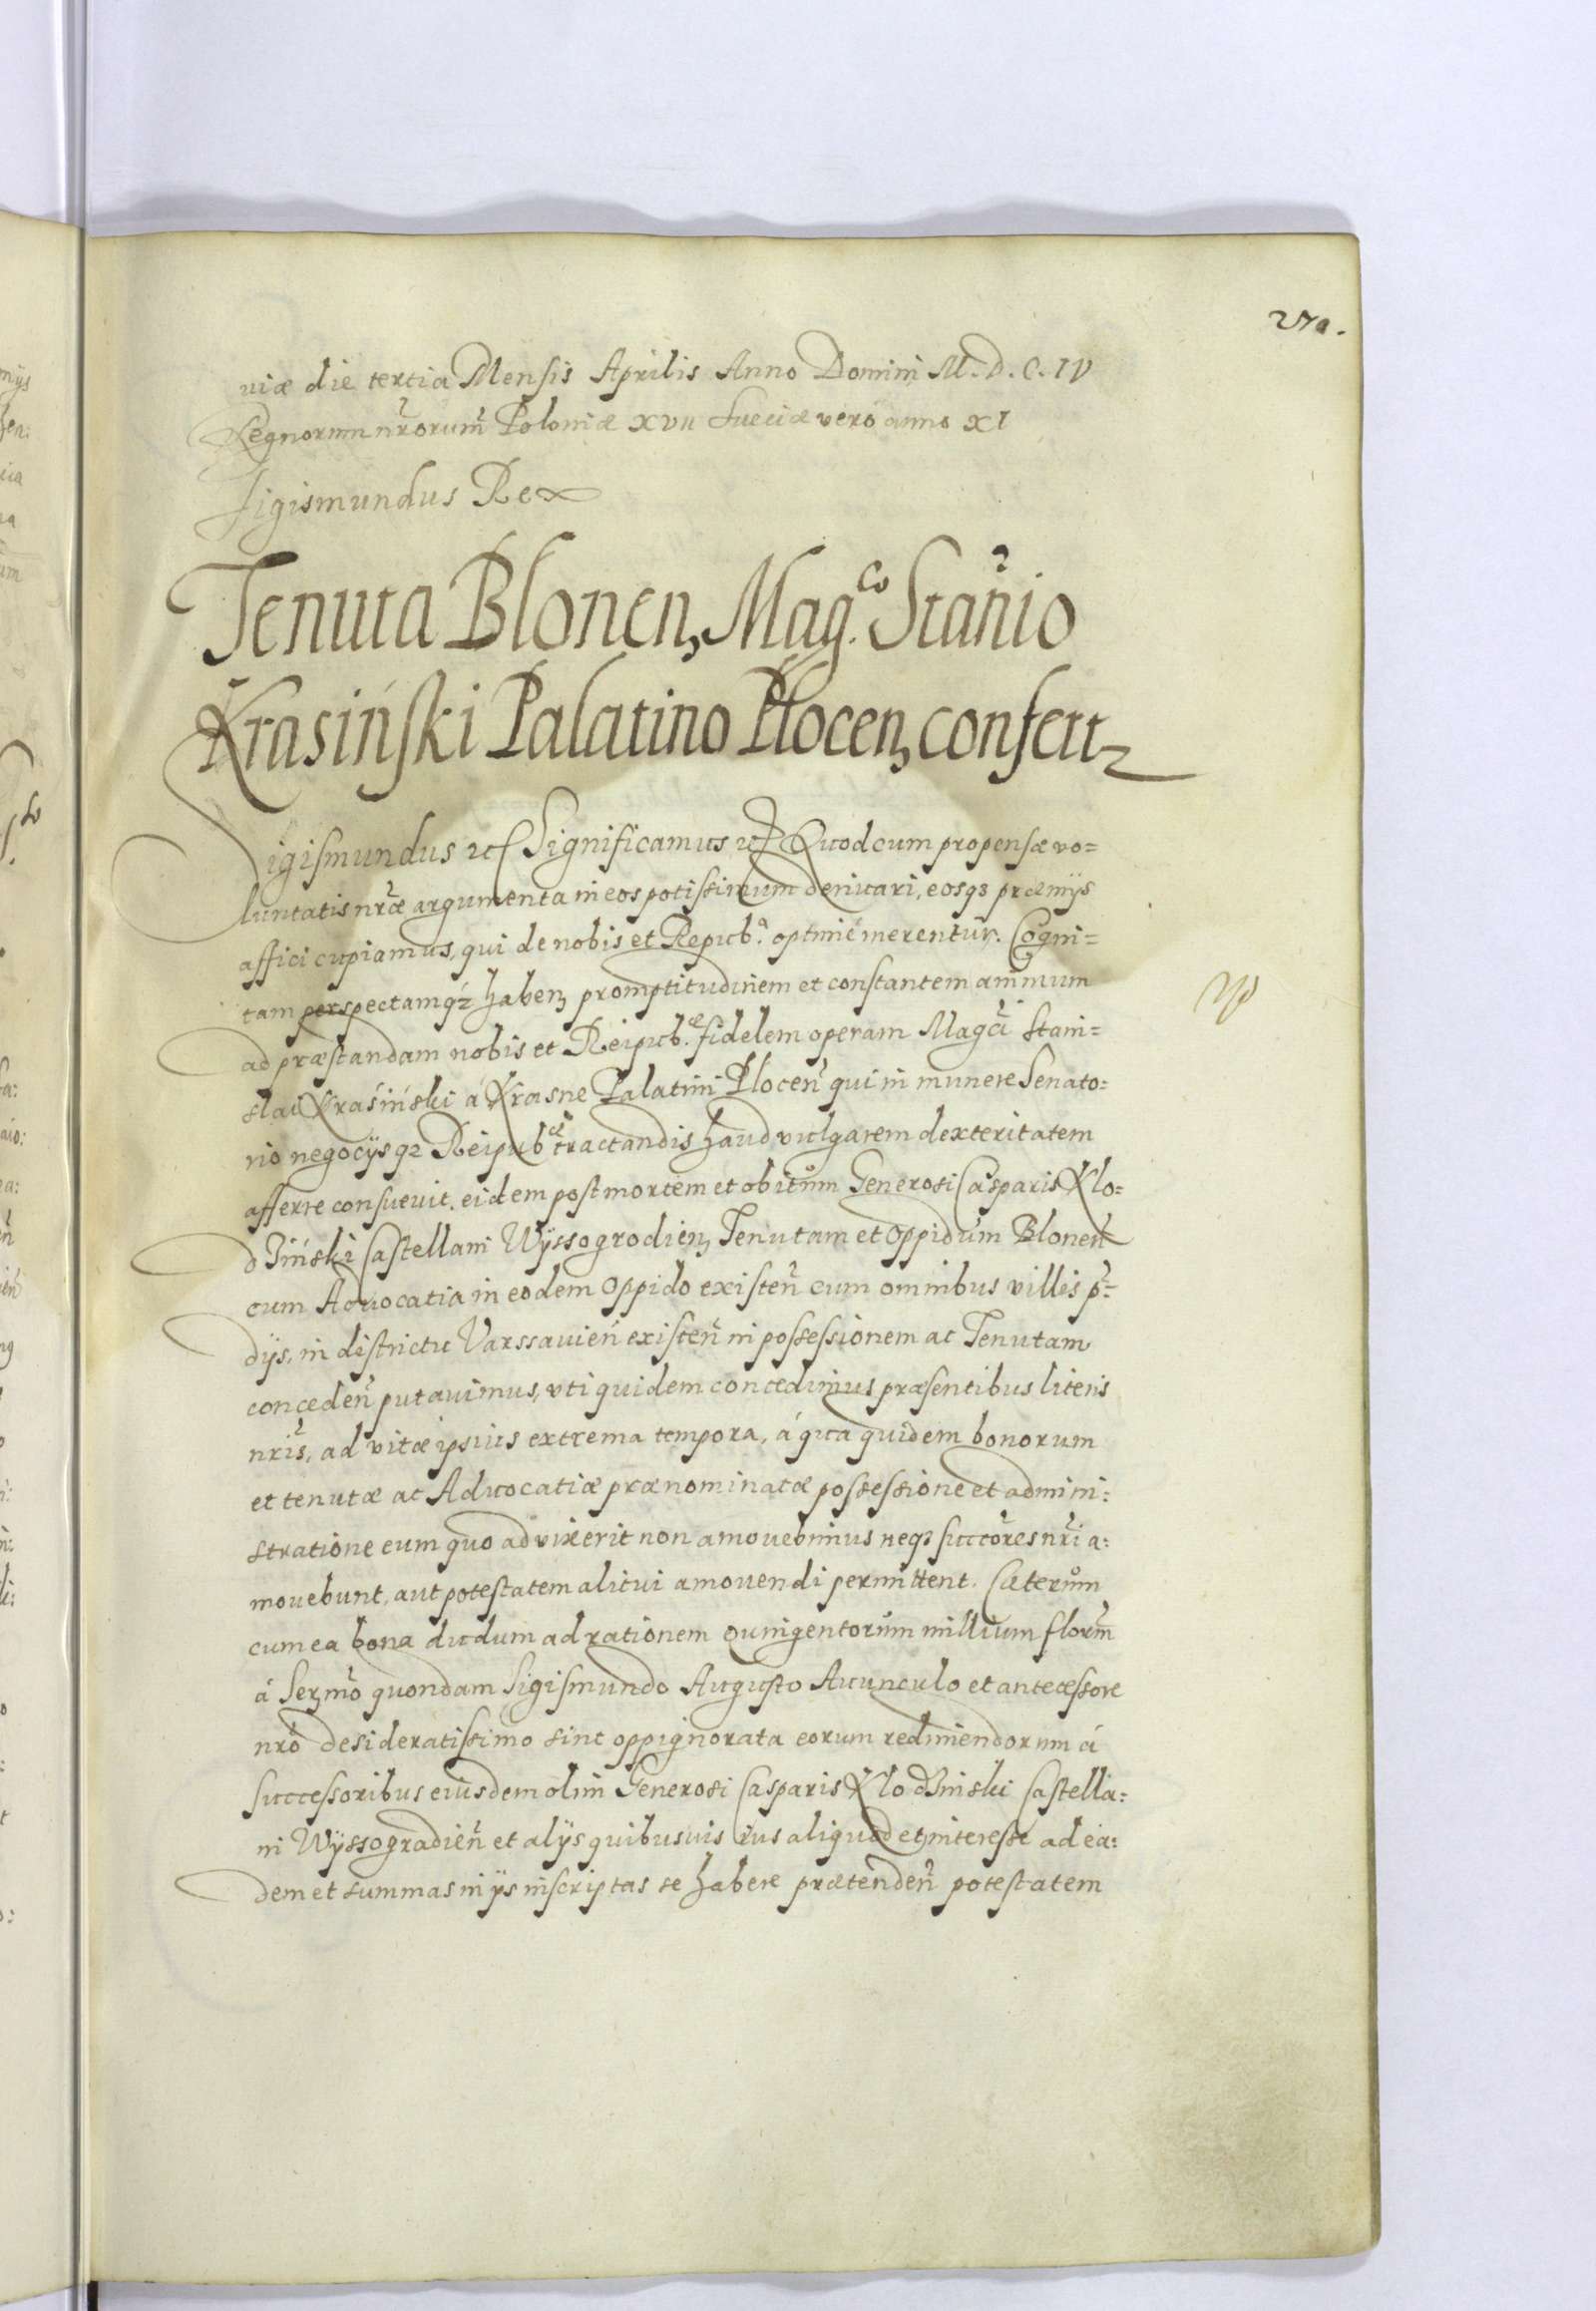 270.
uiæ die tertia Mensis Aprilis Anno Domini M.D.C.IV
Regnorum nr̃orum̃ Poloniæ XVII Sueciæ vero anno XI
Sigismundus Rex
Tenuta Blonen, Mag.co Stan̄io
Krasiński Palatino Plocen, confertz
Sigismundus etc Significamus etc Quod cum propensæ vo=
luntatis nr̃æ argumenta in eos potissimum deriuari, eosqz præmijs
affici cupiamus, qui de nobis et Repub.a optime merentur. Cogni=
tam perspectamqz haben, promptitudinem et constantem animum
ad præstandam nobis et Reipub.æ fidelem operam Magci Stani=
slai Krasiński á Krasne Palatini Plocen̄ qui in munere Senato=
rio negocijsqz Reipubcæ tractandis haud vulgarem dexteritatem
afferre consueuit. eidem post mortem et obitum Generosi Casparis Klo=
dziński Castellani Wyssogrodien, Tenutam et Oppidum Blonen̄
cum Aduocatia in eodem Oppido existen̄ cum omnibus villis p̄=
dijs, in districtu Varssauien̄ existen̄ in possessionem ac Tenutam
conceden̄ putauimus, vti quidem concedimus præsentibus literis
nr̃is, ad vitæ ipsius extrema tempora, á qua quidem bonorum
et tenutæ ac Aduocatiæ prænominatæ possessione et admini:
stratione eum quo ad vixerit non amouebimus neqz succ̃ores nr̃i a:
mouebunt, aut potestatem alicui amouendi permittent. Cæterum
cum ea bona dudum ad rationem quingentorum millium flor̃m
á Serm̃o quondam Sigismundo Augusto Auunculo et antecessore
nr̃o desideratissimo sint oppignorata eorum redimendorum á
successoribus eiusdem olim Generosi Casparis Klodzinski Castella:
ni Wyssogradien̄ et alijs quibusuis ius aliquod et interesse ad ea:
dem et summas in ijs inscriptas se habere prætenden̄ potestatem